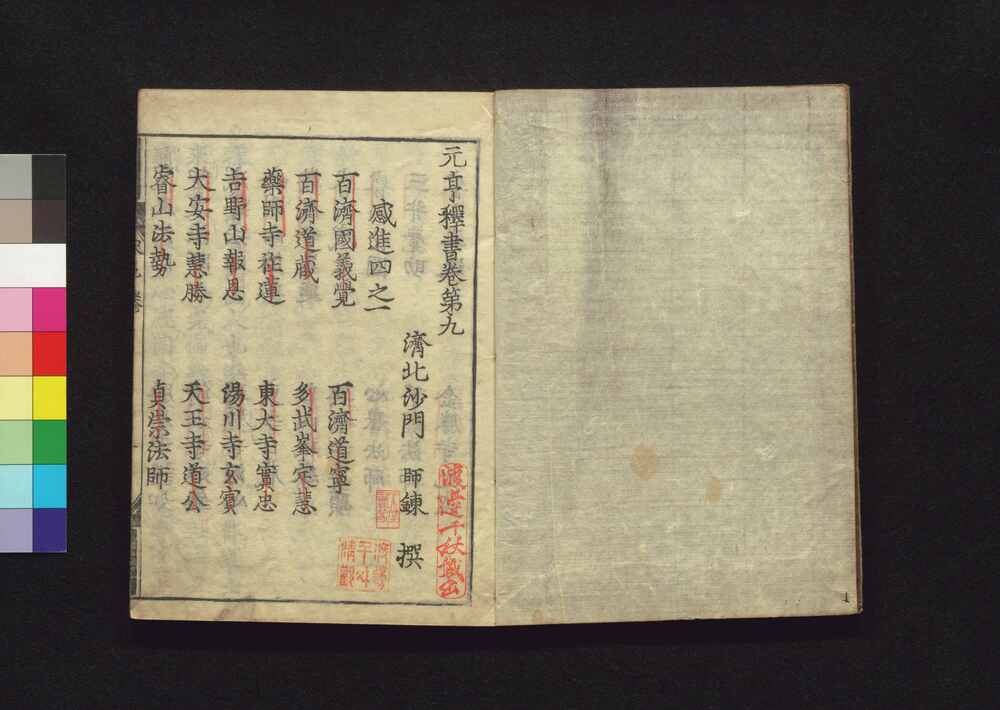 元亨釋書卷第九
濟北沙門 師錬 撰
感進四之一
百濟國義覺 百濟道寧
百濟道藏 多武峯定慧
藥師寺祚蓮 東大寺實忠
吉野山報恩 湯川寺玄賓
大安寺慧勝 天王寺道公
睿山法勢 貞崇法師
渡邊千秋藏書